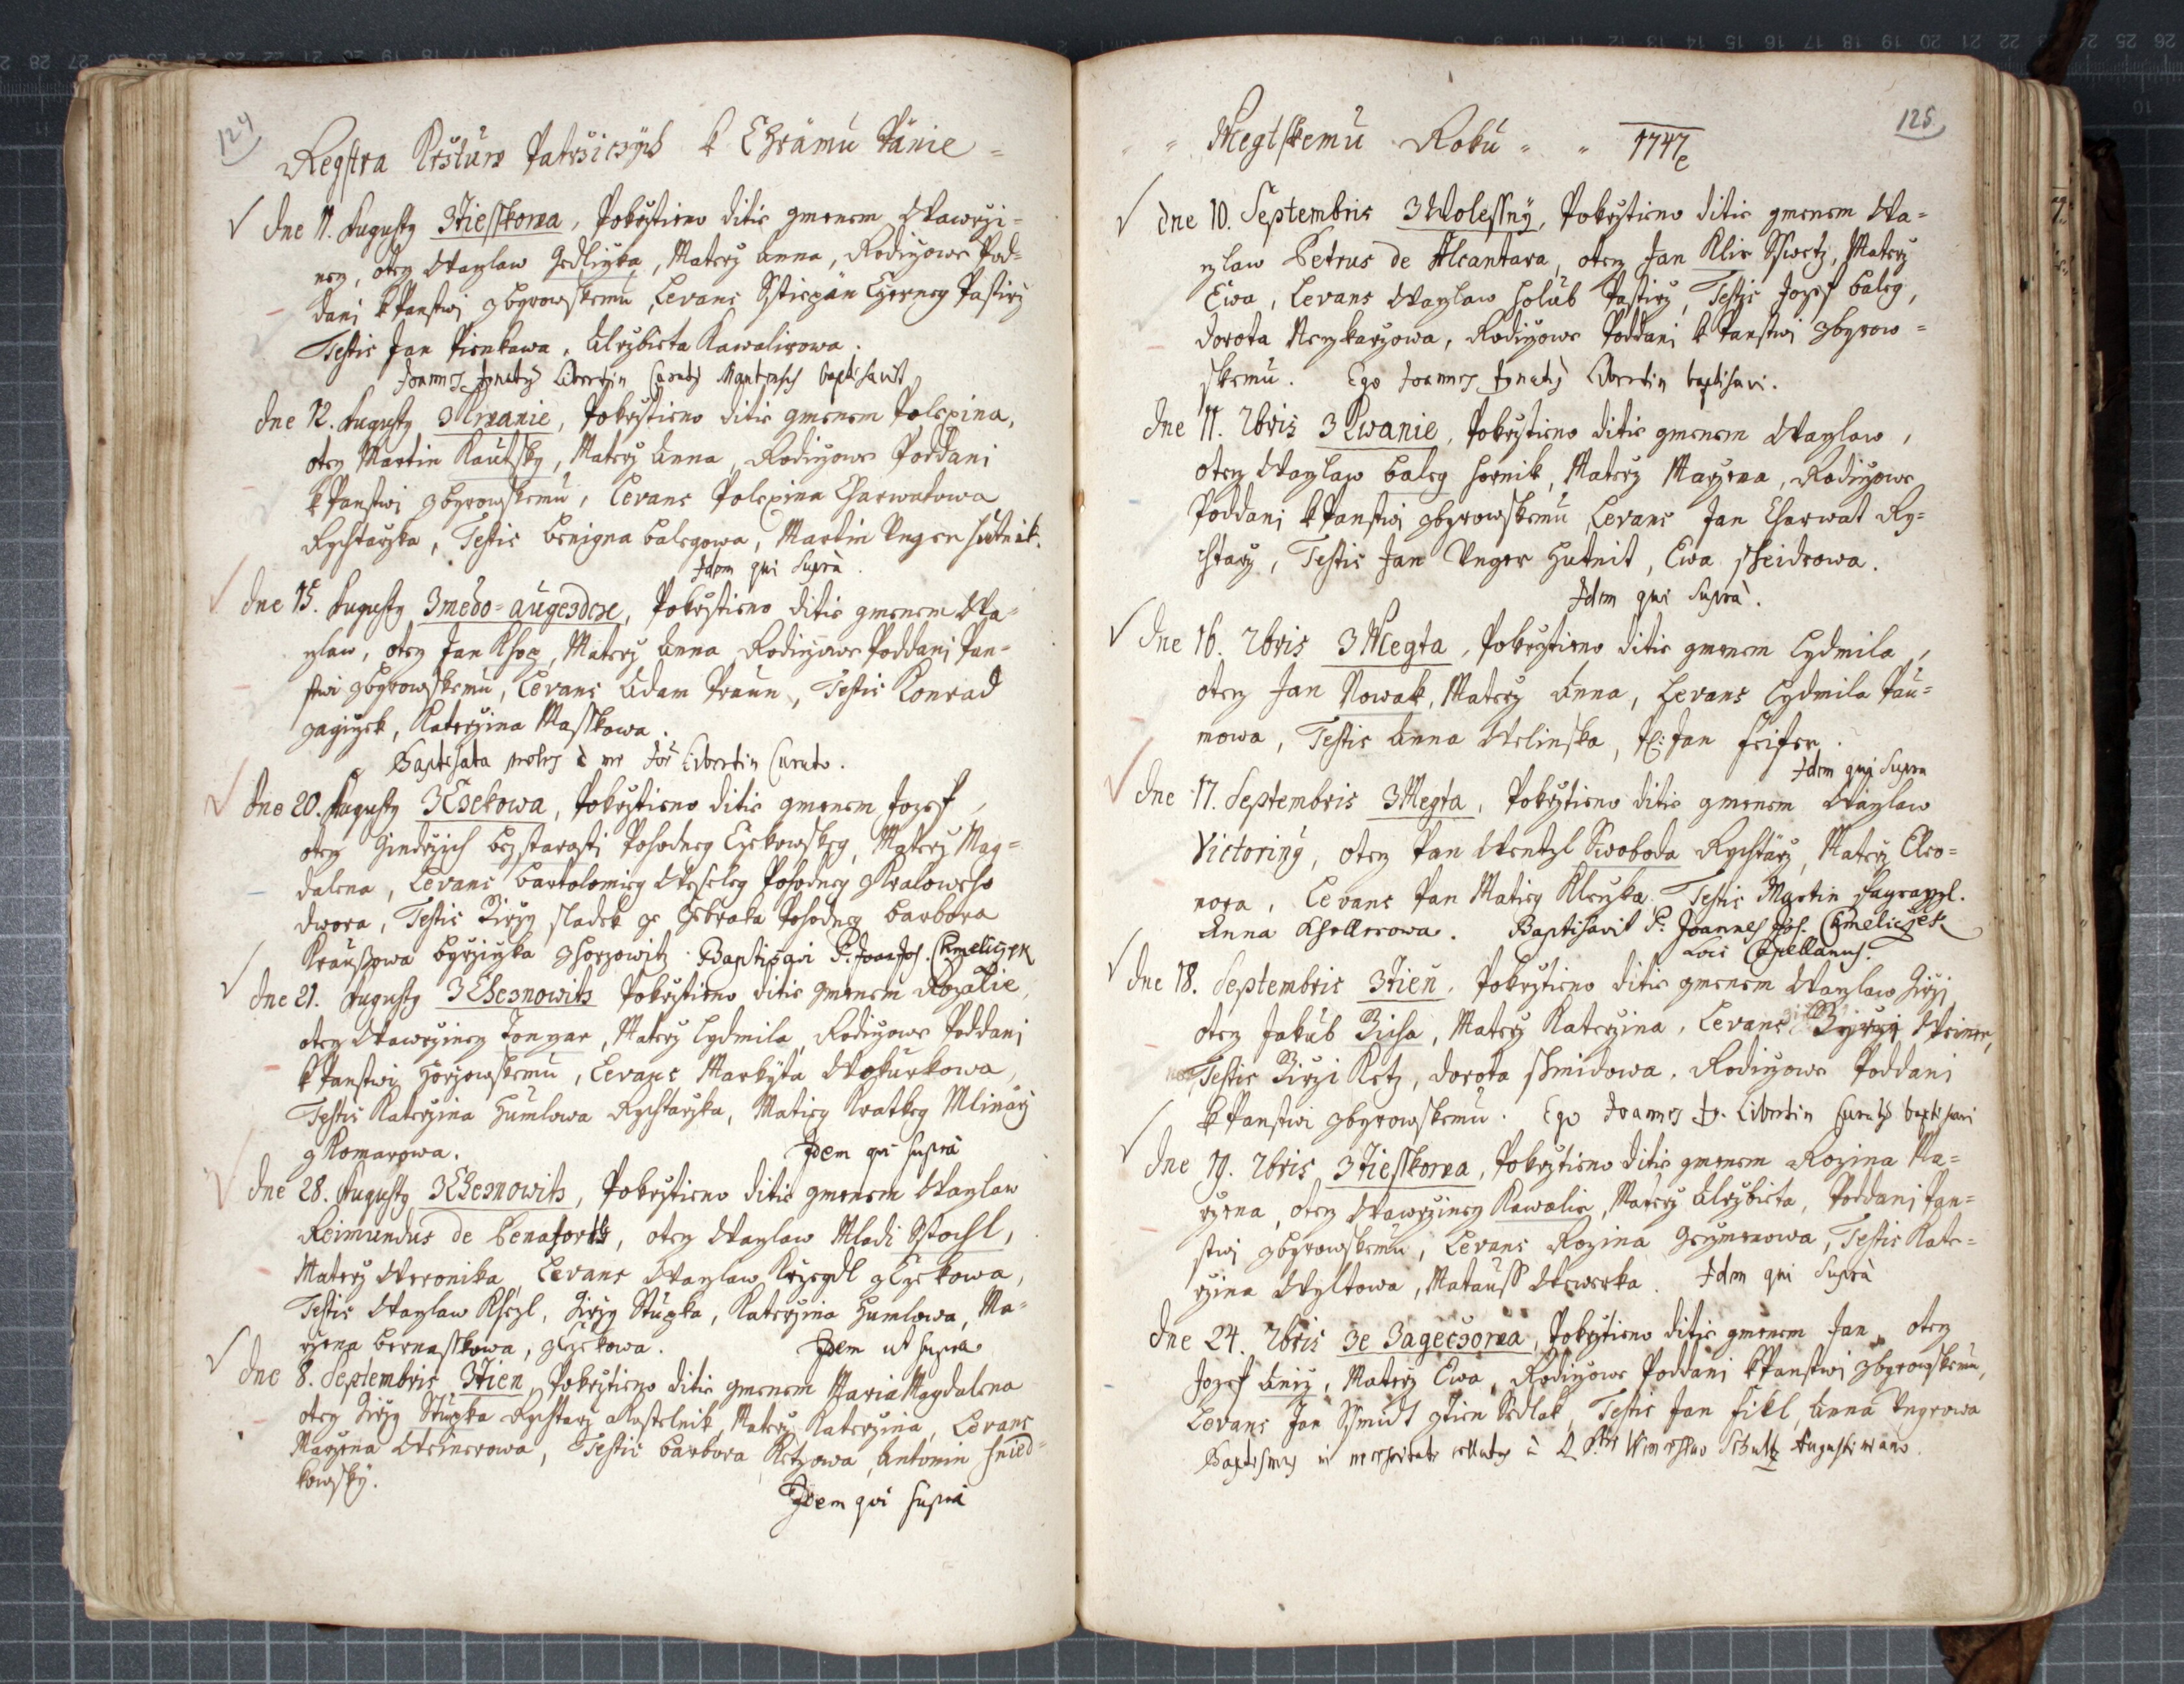 124
Regstra Krztůw Patrziczych k Chrámu Pánie =
dne 11. Augusty z Tiesskowa, Pokrztieno ditie gmenem Wawrzi=
necz, otecz Waczlaw Gedliczka, Materz Anna, Rodiczowe Pod=
dani k Panstwi Zbyrowskemu, Levans Sstiepán Czerney Pastirz
Testis Jan Pienkawa, Alzbieta Kawalirowa.
Joannes Ignatz Libertin Curatus baptisavit
dne 12. Augusty z Kwanie, Pokrztieno ditie gmenem Polexina,
otecz Martin Kautsky, Materz Anna, Rodiczowe Poddani
k Panstwi Zbyrowskemu, Levans Polexina Charwatowa
Rychtarzka, Testis Benigna Balegowa, Martin Unger Hutnik.
Idem qui supra.
dne 15. Augusty z medo=augezdcze, Pokrztieno ditie gmenem Wa=
czlaw, otecz Jan , Materz Anna Rodiczowe Poddani Pan=
stwi Zbyrowskemu, Levans Adam Praun, Testis Konrad
Zagiczek, Katerzina Masskowa.
Baptisata proles à me Joe Libertin Curato.
dne 20. Augusty z Czekowa, Pokrztieno ditie gmenem Jozef,
otecz Gindrzich bez starosti Pohodney Czekowskey, Materz Mag=
dalena, Levans Bartolomiey Weseley Pohodney z Kraloweho
dwora, Testis Girzy sladek ze Zebraka Pohodney Barbora
Krauszowa z Horzowitz. Baptizavi P. Joan Jos. Chmeliczek
dne 21. Augusty z Cheznowitz Pokrztieno ditie gmenem Rozalie,
otecz Wawrzinecz Tonzar, Materz Lydmila, Rodiczowe Poddani
k Panstwi Horzowskemu, Levans Markyta Wokurkowa,
Testis Katerzina Humlowa Rychtarzka, Matiey Kratkey Mlinarz
z Komarowa. Idem qui supra
dne 28. Augusty z Cheznowitz, Pokrztieno ditie gmenem Waczlaw
Reimundus de Penaforte, otecz Waczlaw Mladi Sstochl,
Materz Weronika, Levans Waczlaw Krzegdl z Czekowa,
Testis Waczlaw , Girzy Stupka, Katerzina Humlowa, Ma=
rzena Bernasskowa, z Czekowa. Idem ut supra
dne 8. Septembris z Tien, Pokrztieno ditie gmenem Maria Magdalena
otecz Girzy Stupka Rychtarz a Kostelnik, Materz Katerzina, Levans
Marzena Weinerowa, Testis Barbora Retzowa, Antonin Hnied=
kowsky.
Idem qui supra
125
= = Megtskemu Roku = = 1747
dne 10. Septembris z Wolessny, Pokrztieno ditie gmenem Wa=
czlaw Petrus de Alcantara, otecz Jan Klir Sswetz, Materz
Ewa, Levans Waczlaw Holub Pastirz, Testis Jozef Baley,
Dorota , Rodiczowe Poddani k Panstwi Zbyrow=
skemu. Ego Joannes Ignatz Libertin baptisavi.
dne 11. 7bris z Kwanie, Pokrztieno ditie gmenem Waczlaw,
otecz Waczlaw Baleg Hornik, Materz Marzena, Rodiczowe
Poddani k Panstwi Zbyrowskemu Levans Jan Charwat Ry=
chtarz, Testis Jan Unger Hutnik, Ewa Sneidrowa.
Idem qui supra.
dne 16. 7bris z Megta, Pokrztieno ditie gmenem Lydmila,
otecz Jan Nowak, Materz Anna, Levans Lydmila Pau=
mowa, Testis Anna Welinska, Jan Feifer.
Idem qui supra
dne 17. Septembris z Megta, Pokrztieno ditie gmenem Waczlaw
Victoriny, otecz Pan Wentzl Swoboda Rychtarz, Materz Eleo=
nora, Levans Pan Matiey Kleczka. Testis Martin .
Anna Khellerowa. Baptisavit P. Joannes Jos. Chmeliczek
Loci Capellanus.
dne 18. Septembris z Tien, Pokrztieno ditie gmenem Waczlaw Girzi
otecz Jakub Zicha, Materz Katerzina, Levans Weiner,
Testis Girzi Retz, Dorota Smidowa. Rodiczowe Poddani
k Panstwi Zbyrowskemu. Ego Joannes Ig. Libertin Curatus baptisavi
dne 19. 7bris z Tiesskowa, Pokrztieno ditie gmenem Rozina Ma=
rzena, otecz Wawrzinecz Kawalir, Materz Alzbieta, Poddani Pan=
stwi Zbyrowskemu, Levans Rozina Gezymenowa, Testis Kate=
rzina Wyltowa, Matauss Wewerka. Idem qui supra
dne 24. 7bris ze Zageczowa, Pokrztieno ditie gmenem Jan, otecz
Jozef Aniz, Materz Ewa, Rodiczowe Poddani k Panstwi Zbyrowskemu,
Levans Jan Ssmidt z Tien Sedlak, Testis Jan Fikl, Anna Ungrowa
Baptismus in necessitate collatus à Schultz Augustiniano.